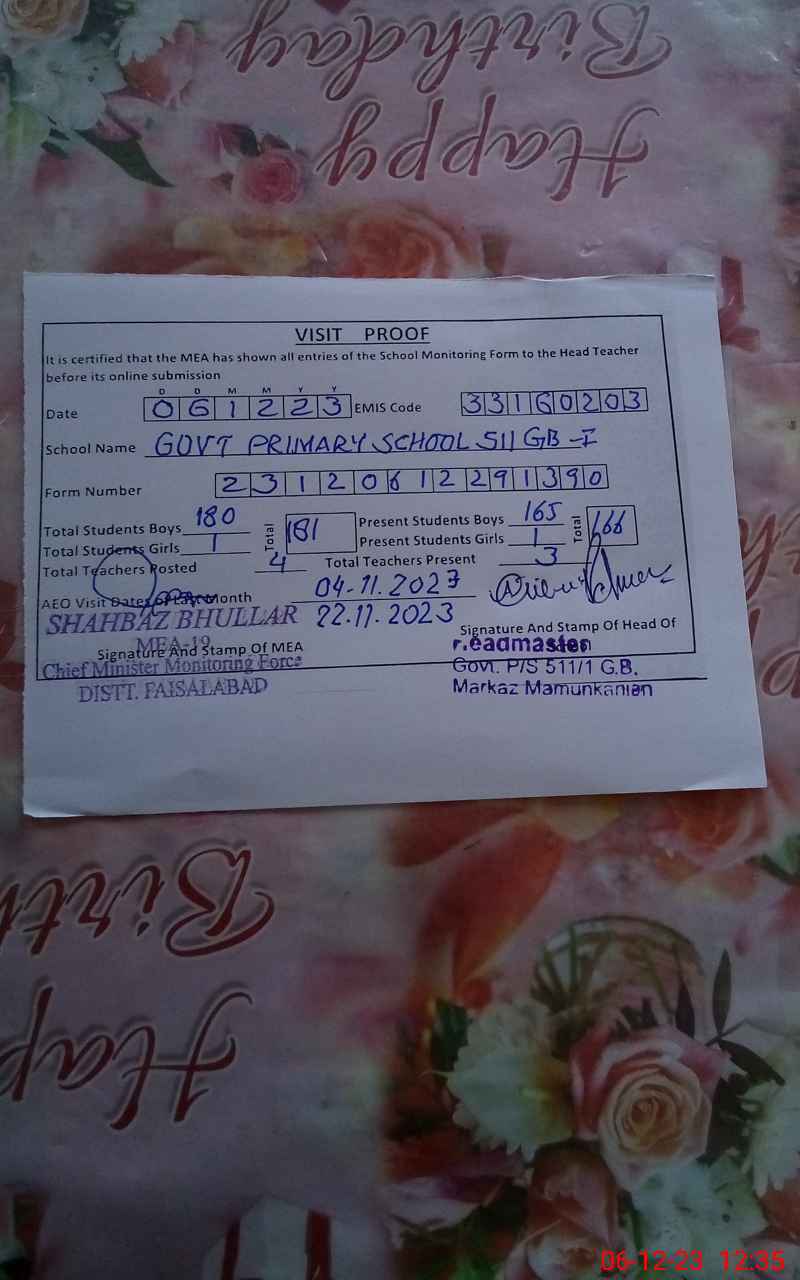 Happy
Birthday
VISIT PROOF
It is certified that the MEA has shown all entries of the School Monitoring Form to the Head Teacher
before its online submission
D D M M Y Y
Date 061223 EMIS Code 33160203
School Name GOVT PRIMARY SCHOOL 511 GB-I
Form Number 23120612291390
Total Students Boys 180 Total 181 Present Students Boys 165 Total 166
Total Students Girls 1 Present Students Girls 1
Total Teachers Posted 4 Total Teachers Present 3
AEO Visit Dates of Last Month 04-11.2023
22.11.2023
SHAHBAZ BHULLAR
MEA-19
Signature And Stamp Of MEA
Chief Minister Monitoring Force
DISTT. FAISALABAD
Signature And Stamp Of Head Of
Headmaster
Govt. P/S 511/1 G.B.
Markaz Mamunkanjan
Happy
Birth
06-12-23 12:35